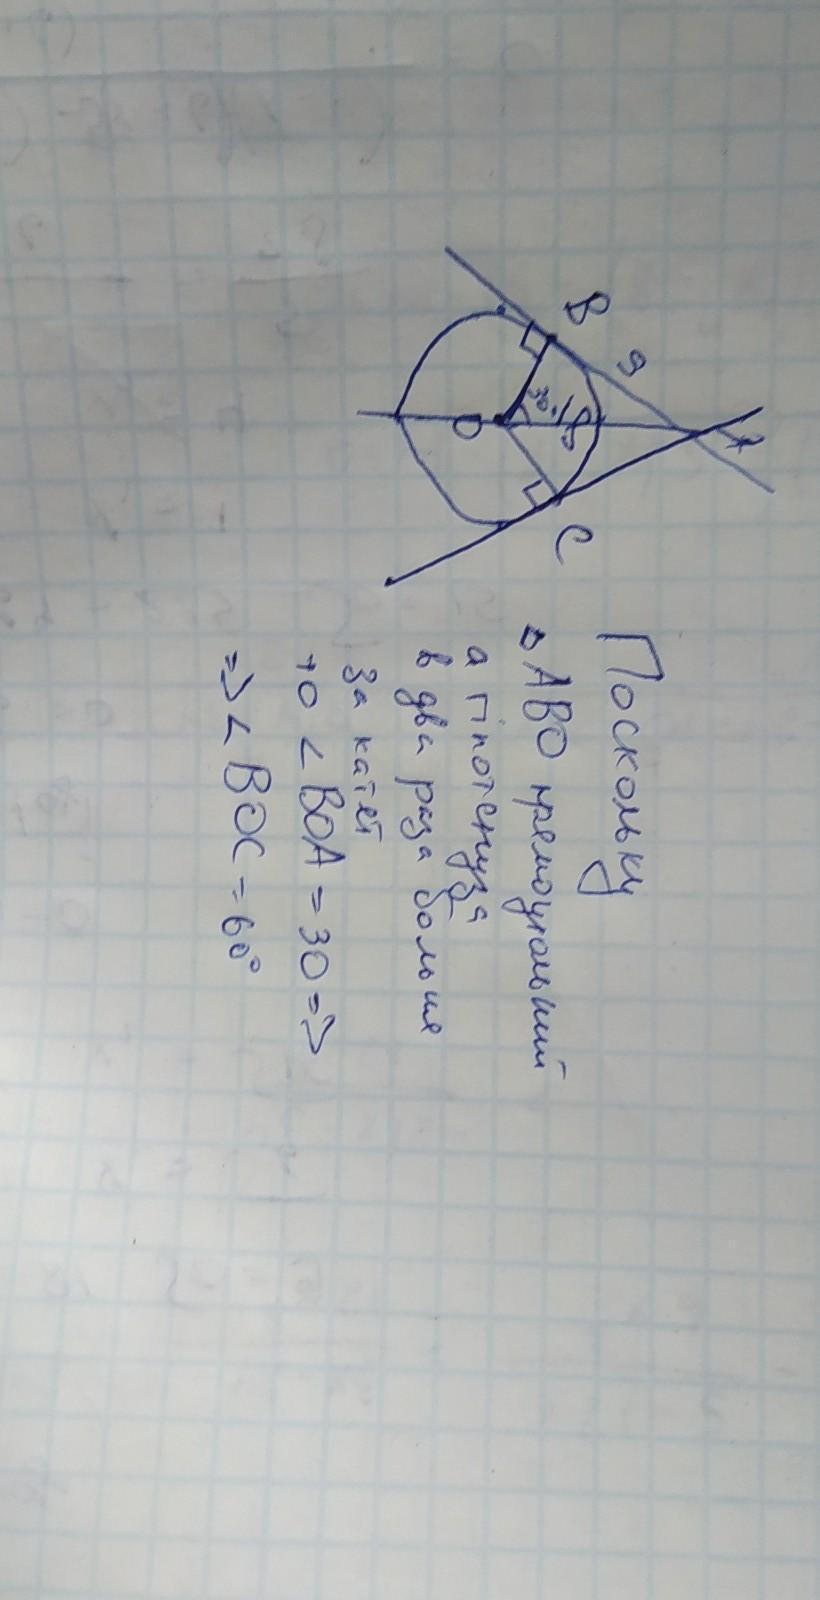 B
9
A
30°
18
O
C
Поскольку
△ ABO прямоуголный
а гіпотенуза
в два раза больше
за катет
то ∠ BOA = 30 =>
=> ∠ BOC = 60°